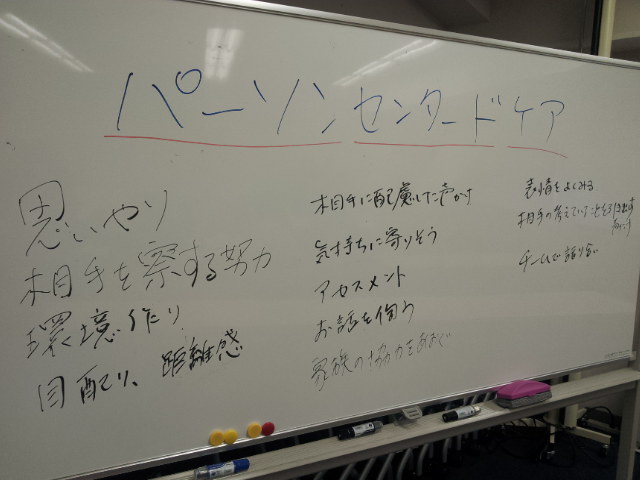 パーソンセンタードケア
思いやり
相手を察する努力
環境作り
目配り、距離感
相手に配慮した声かけ
気持ちに寄りそう
アセスメント
お話を伺う
家族の協力をあおぐ
表情をよくみる
相手の考えていることを
チームで話し合い